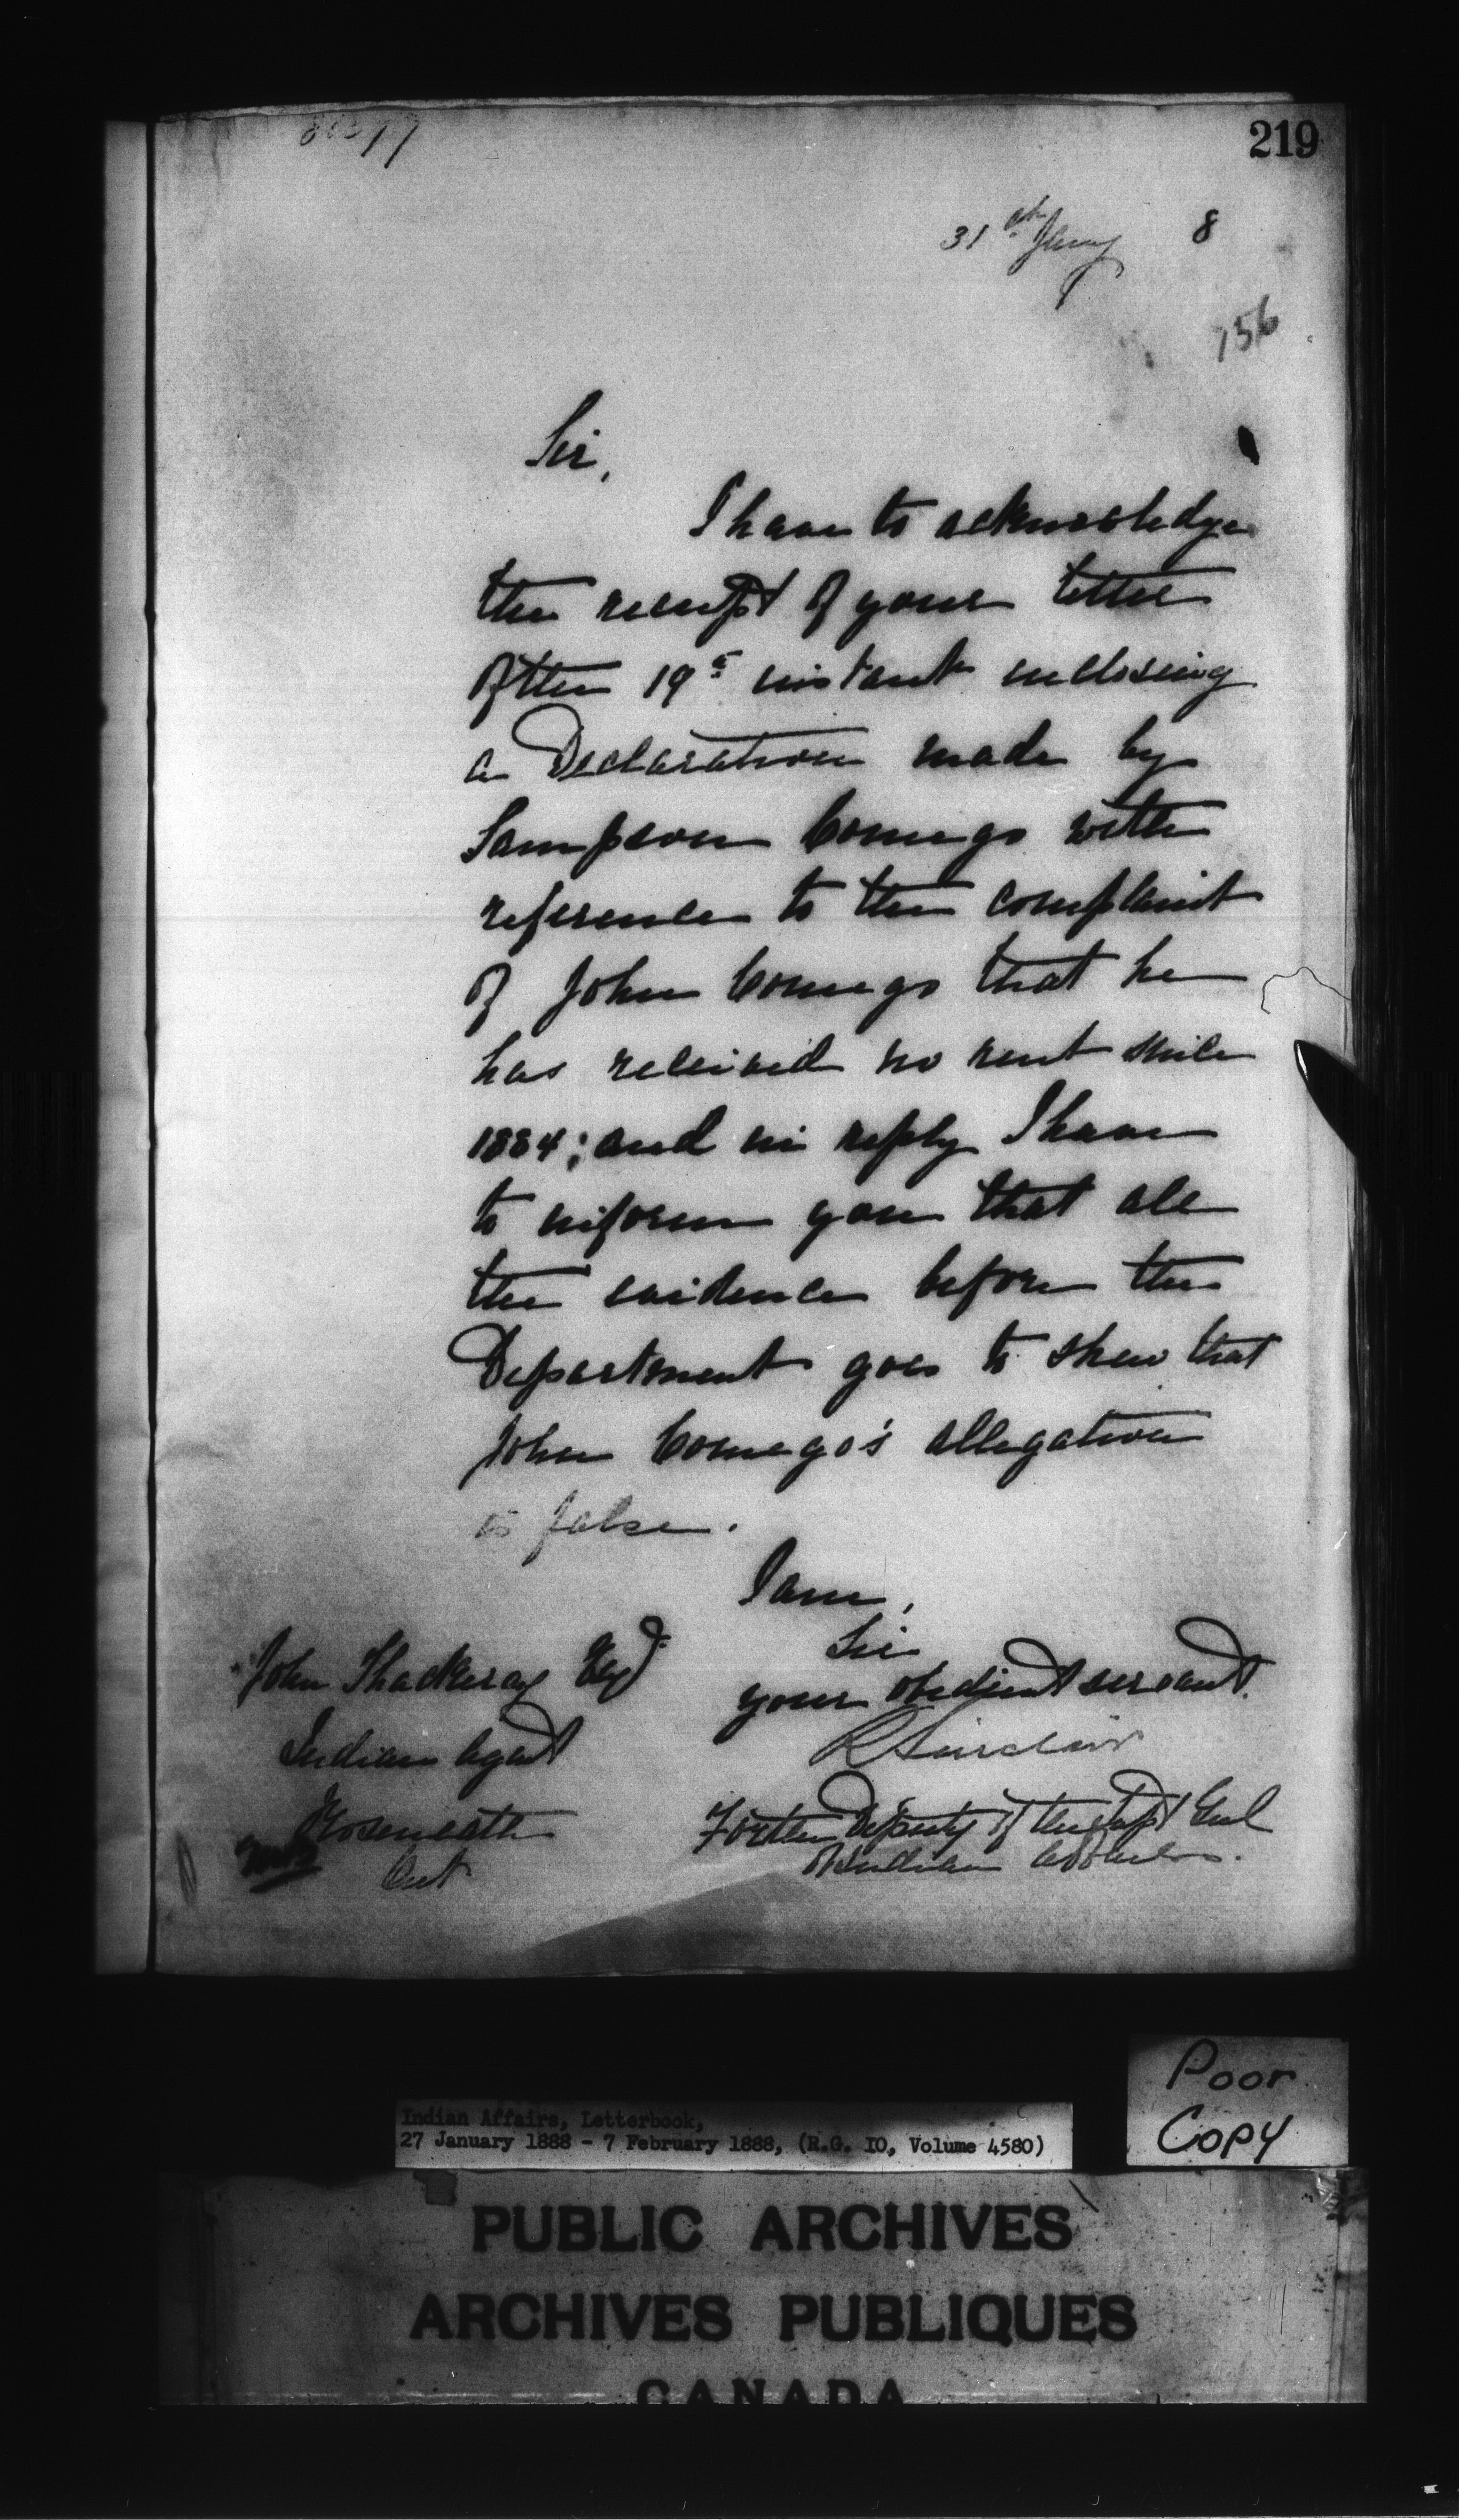 219
31st Jany 8
156
Sir,
I have to acknowledge
the receipt of your letter
of the 19th instant enclosing
a Declaration made by
Sampson Comego with
reference to the complaint
of John Comego that he
has received no rent since
1884; and in reply I have
to inform you that all
the evidence before the
Department goes to shew that
John Comego's allegation
is false.
I am,
Sir
your obedient servant.
R Sinclair
For the Deputy of the Supt Genl
of Indian Affairs.
John Thackeray Esq
Indian Agent
Roseneath
Ont
Poor
Copy
Indian Affairs, Letterbook,
27 January 1888 - 7 February 1888, (R.G. 10, Volume 4580)
PUBLIC ARCHIVES
ARCHIVES PUBLIQUES
CANADA